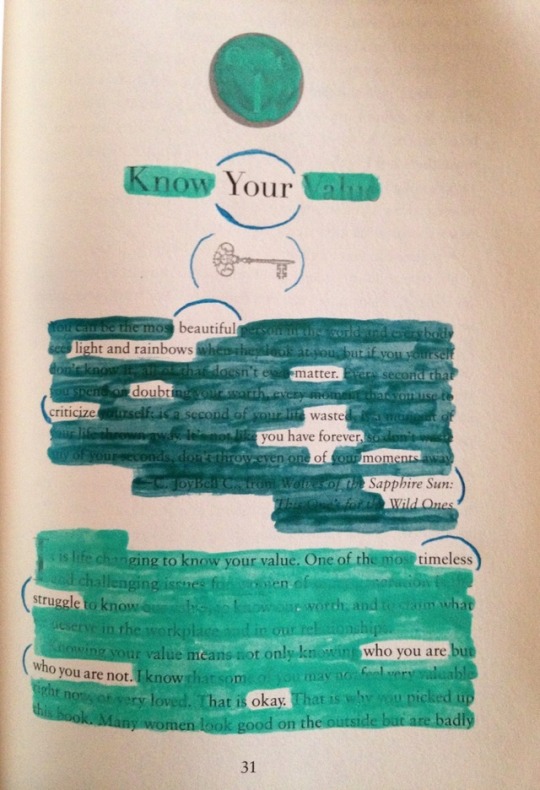 Know Your Value
You can be the most beautiful person in the world and everybody
sees light and rainbows when they look at you, but if you yourself
don't know it, all of that doesn't even matter. Every second that
you spend on doubting your worth, every moment that you use to
criticize yourself; is a second of your life wasted, is a moment of
your life thrown away. It's not like you have forever, so don't waste
any of your seconds, don't throw even one of your moments away.
—C. JoyBell C., from Wolves of the Sapphire Sun:
This One's for the Wild Ones
It is life changing to know your value. One of the most timeless
and challenging issues for women of
struggle to know our worth, and to claim what
deserve in the workplace and in our relationships.
Knowing your value means not only knowing who you are but
who you are not. I know that some of you may not feel very valuable
right now, or very loved. That is okay. That is why you picked up
this book. Many women look good on the outside but are badly
31